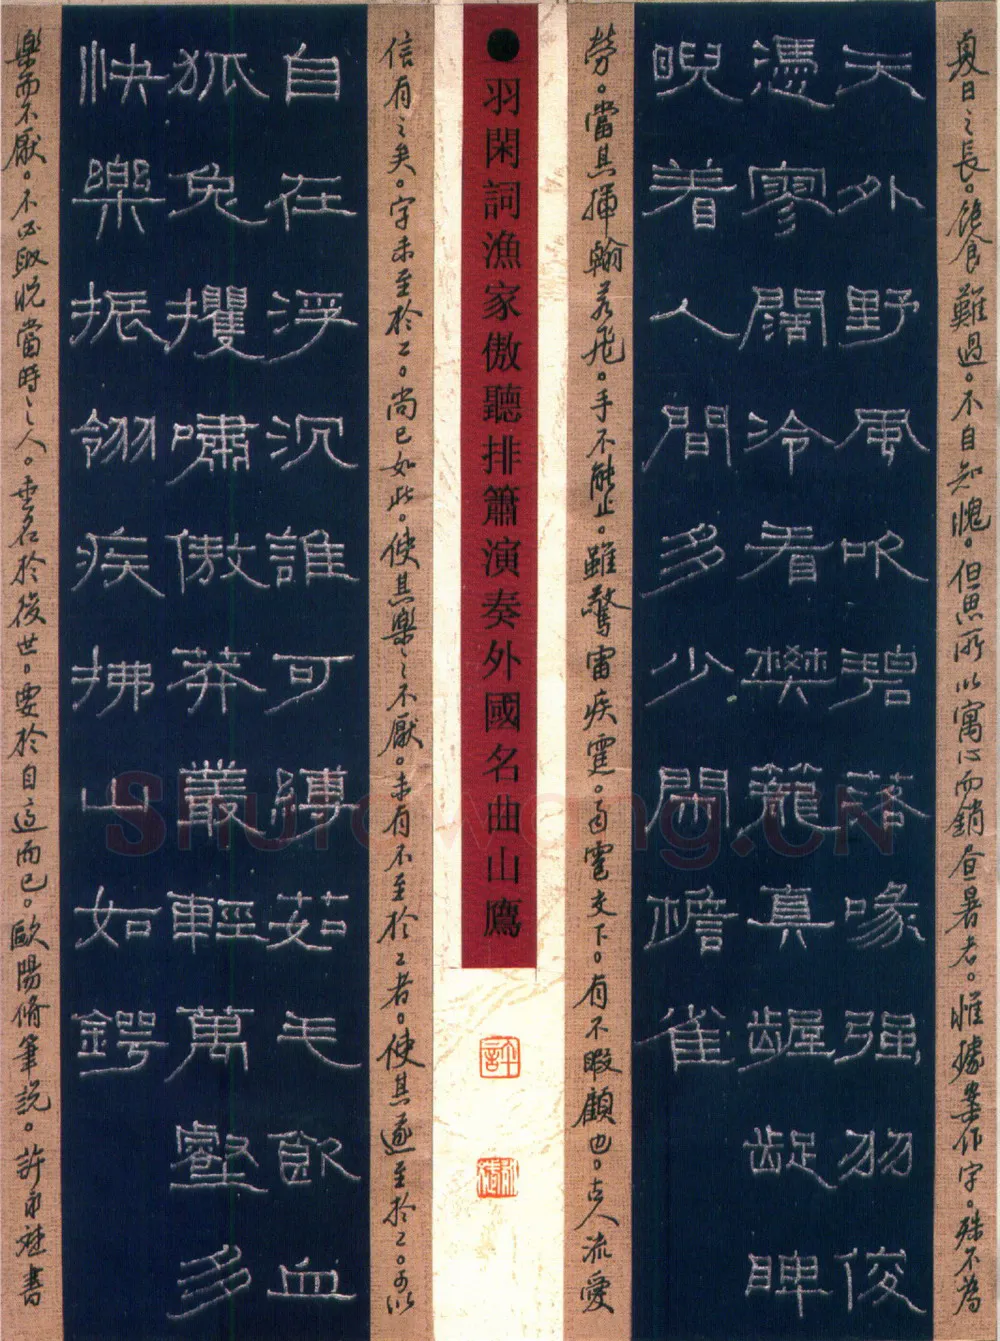 夏日之長。飽食難過。不自知愧。但思所以寓心而銷晝暑者。惟據案作字。殊不為
天外野風吹碧落喙强羽俊
憑寥闊冷看樊籠真齷齪睥
睨着人間多少閑檐雀
勞。當其揮翰若飛。手不能止。雖驚雷疾霆。雨雹交下。有不暇顧也。古人流愛
●羽閑詞漁家傲聽排簫演奏外國名曲山鷹
許
信有之矣。字未至於工。尚已如此。使其樂之不厭。未有不至於工者。使其遂至於工。可以
自在浮沉誰可縛茹毛飲血
狐兔攫嘯傲莽叢輕萬壑多
快樂振翎疾拂山如鍔
樂而不厭。不必取悅當時之人。垂名於後世。要於自適而已。歐陽脩筆說。許書
Shufawang.CN